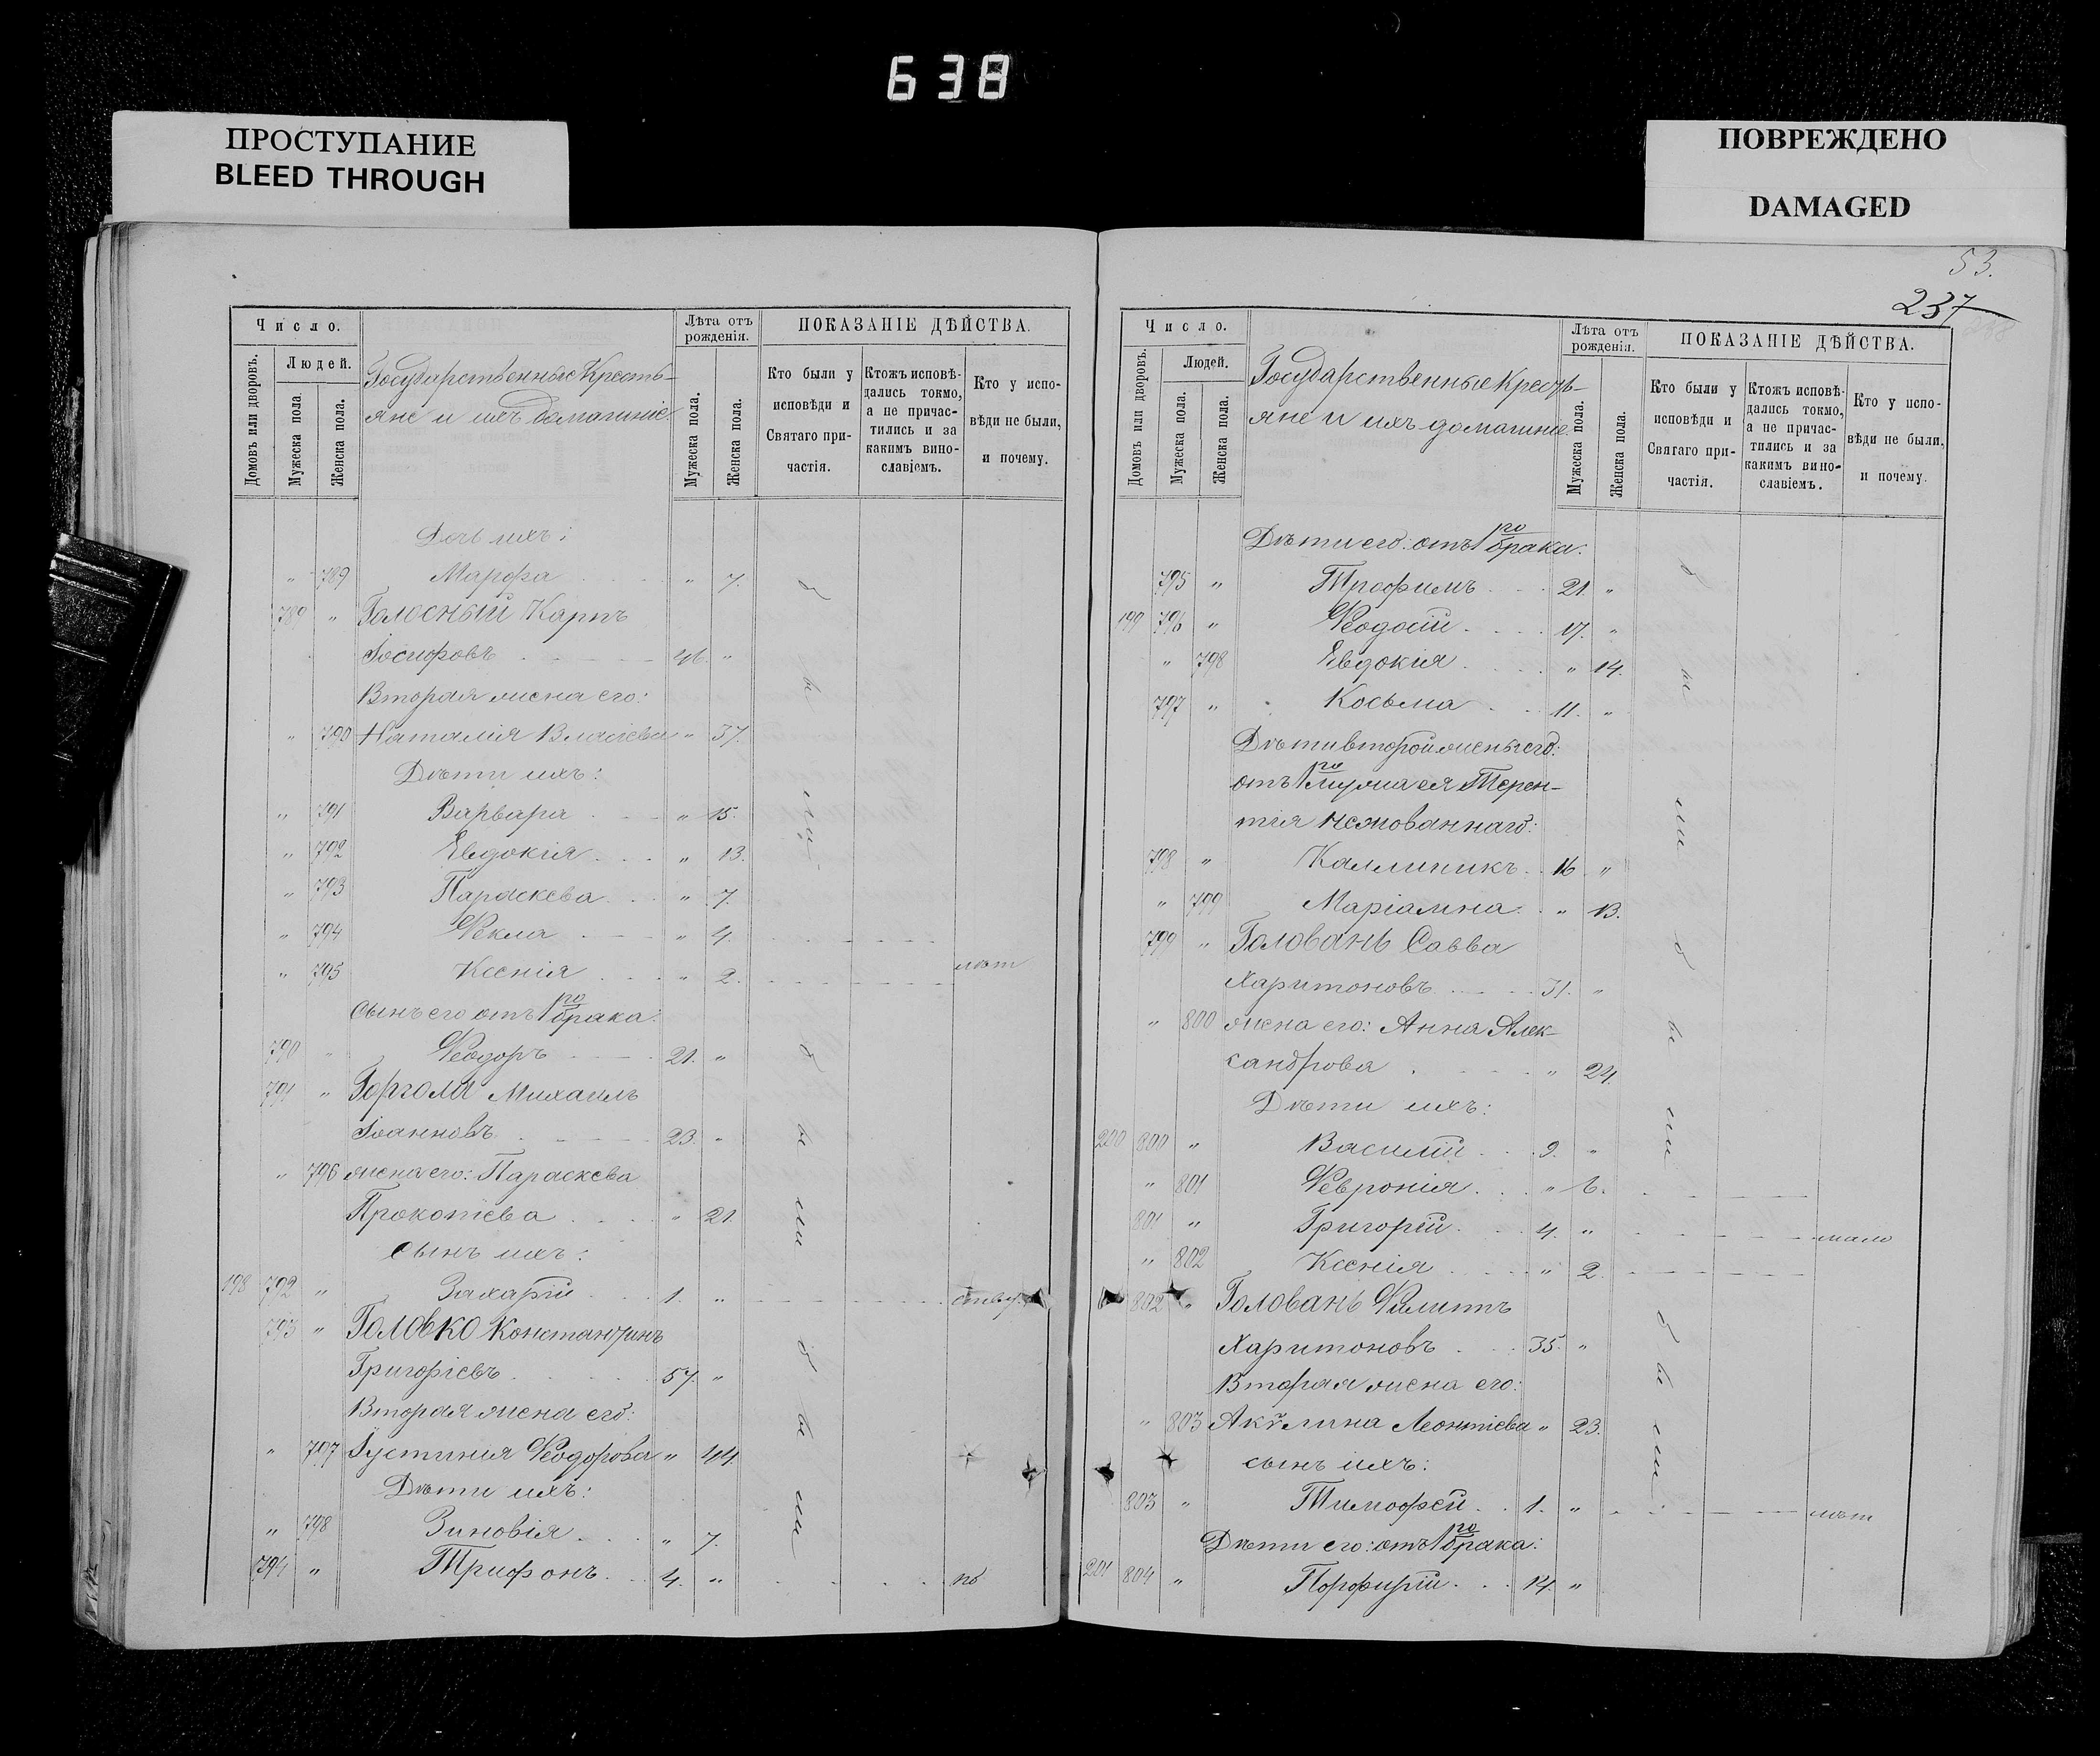 638
ПРОСТУПАНИЕ
BLEED THROUGH
ПОВРЕЖДЕНО
DAMAGED
Число.
Людей.
Домовъ или дворовъ.
Мужеска пола.
Женска пола.
Государственные Кресть-
яне и ихъ домашніе.
Лѣта отъ рожденія.
Мужеска пола.
Женска пола.
ПОКАЗАНІЕ ДѢЙСТВА.
Кто были у исповѣди и Святаго при-частія.
Ктожъ исповѣ-дались токмо, а не причас-тились и за какимъ вино-славіемъ.
Кто у испо-вѣди не были, и почему.
Дочь ихъ:
" 789 Марфа " 7.
789 " Голосный Карпъ
Іосифовъ 46. "
Вторая жена его:
" 790 Наталія Власіева " 37.
Дѣти ихъ:
" 791 Варвара " 15.
" 792 Евдокія " 13.
" 793 Параскева " 7.
" 794 Ѳекла " 4.
" 795 Ксенія " 2. лѣт
Сынъ его отъ 1го брака:
790 " Ѳеодоръ 21. "
791 " Горголя Михаилъ
Іоанновъ 23. "
" 796 жена его: Параскева
Прокопіева " 21.
Сынъ ихъ:
198 792 " Захарій 1. "
793 " Головко Константинъ
Григоріевъ 57. "
Вторая жена его:
" 797 Іустинія Ѳеодорова " 44.
Дѣти ихъ:
" 798 Зиновія " 7.
794 " Трифонъ 4. "
были
были
были
53.
237
Число.
Людей.
Домовъ или дворовъ.
Мужеска пола.
Женска пола.
Государственные Кресть-
яне и ихъ домашніе.
Лѣта отъ рожденія.
Мужеска пола.
Женска пола.
ПОКАЗАНІЕ ДѢЙСТВА.
Кто были у исповѣди и Святаго при-частія.
Ктожъ исповѣ-дались токмо, а не причас-тились и за какимъ вино-славіемъ.
Кто у испо-вѣди не были, и почему.
Дѣти его: отъ 1го брака:
795 " Трофимъ 21. "
199 796 " Ѳеодосій 17. "
" 798 Евдокія " 14.
797 " Косьма 11. "
Дѣти второй жены его:
отъ 1го мужа ея Терен-
тія
798 " Каллиникъ 16. "
" 799 Маріамна " 13.
799 " Головань Савва
Харитоновъ 31. "
" 800 жена его: Анна Алек-
сандрова " 24.
Дѣти ихъ:
200 800 " Василій 9. "
" 801 Ѳевронія " 6.
801 " Григорій 4. " мало
" 802 Ксенія " 2.
802 " Головань Филиппъ
Харитоновъ 35. "
Вторая жена его:
" 803 Акѵлина Леонтіева " 23.
Сынъ ихъ:
803 " Тимофей 1. " лѣт
Дѣти его: отъ 1го брака:
201 804 " Порфирій 14. "
были
были
были